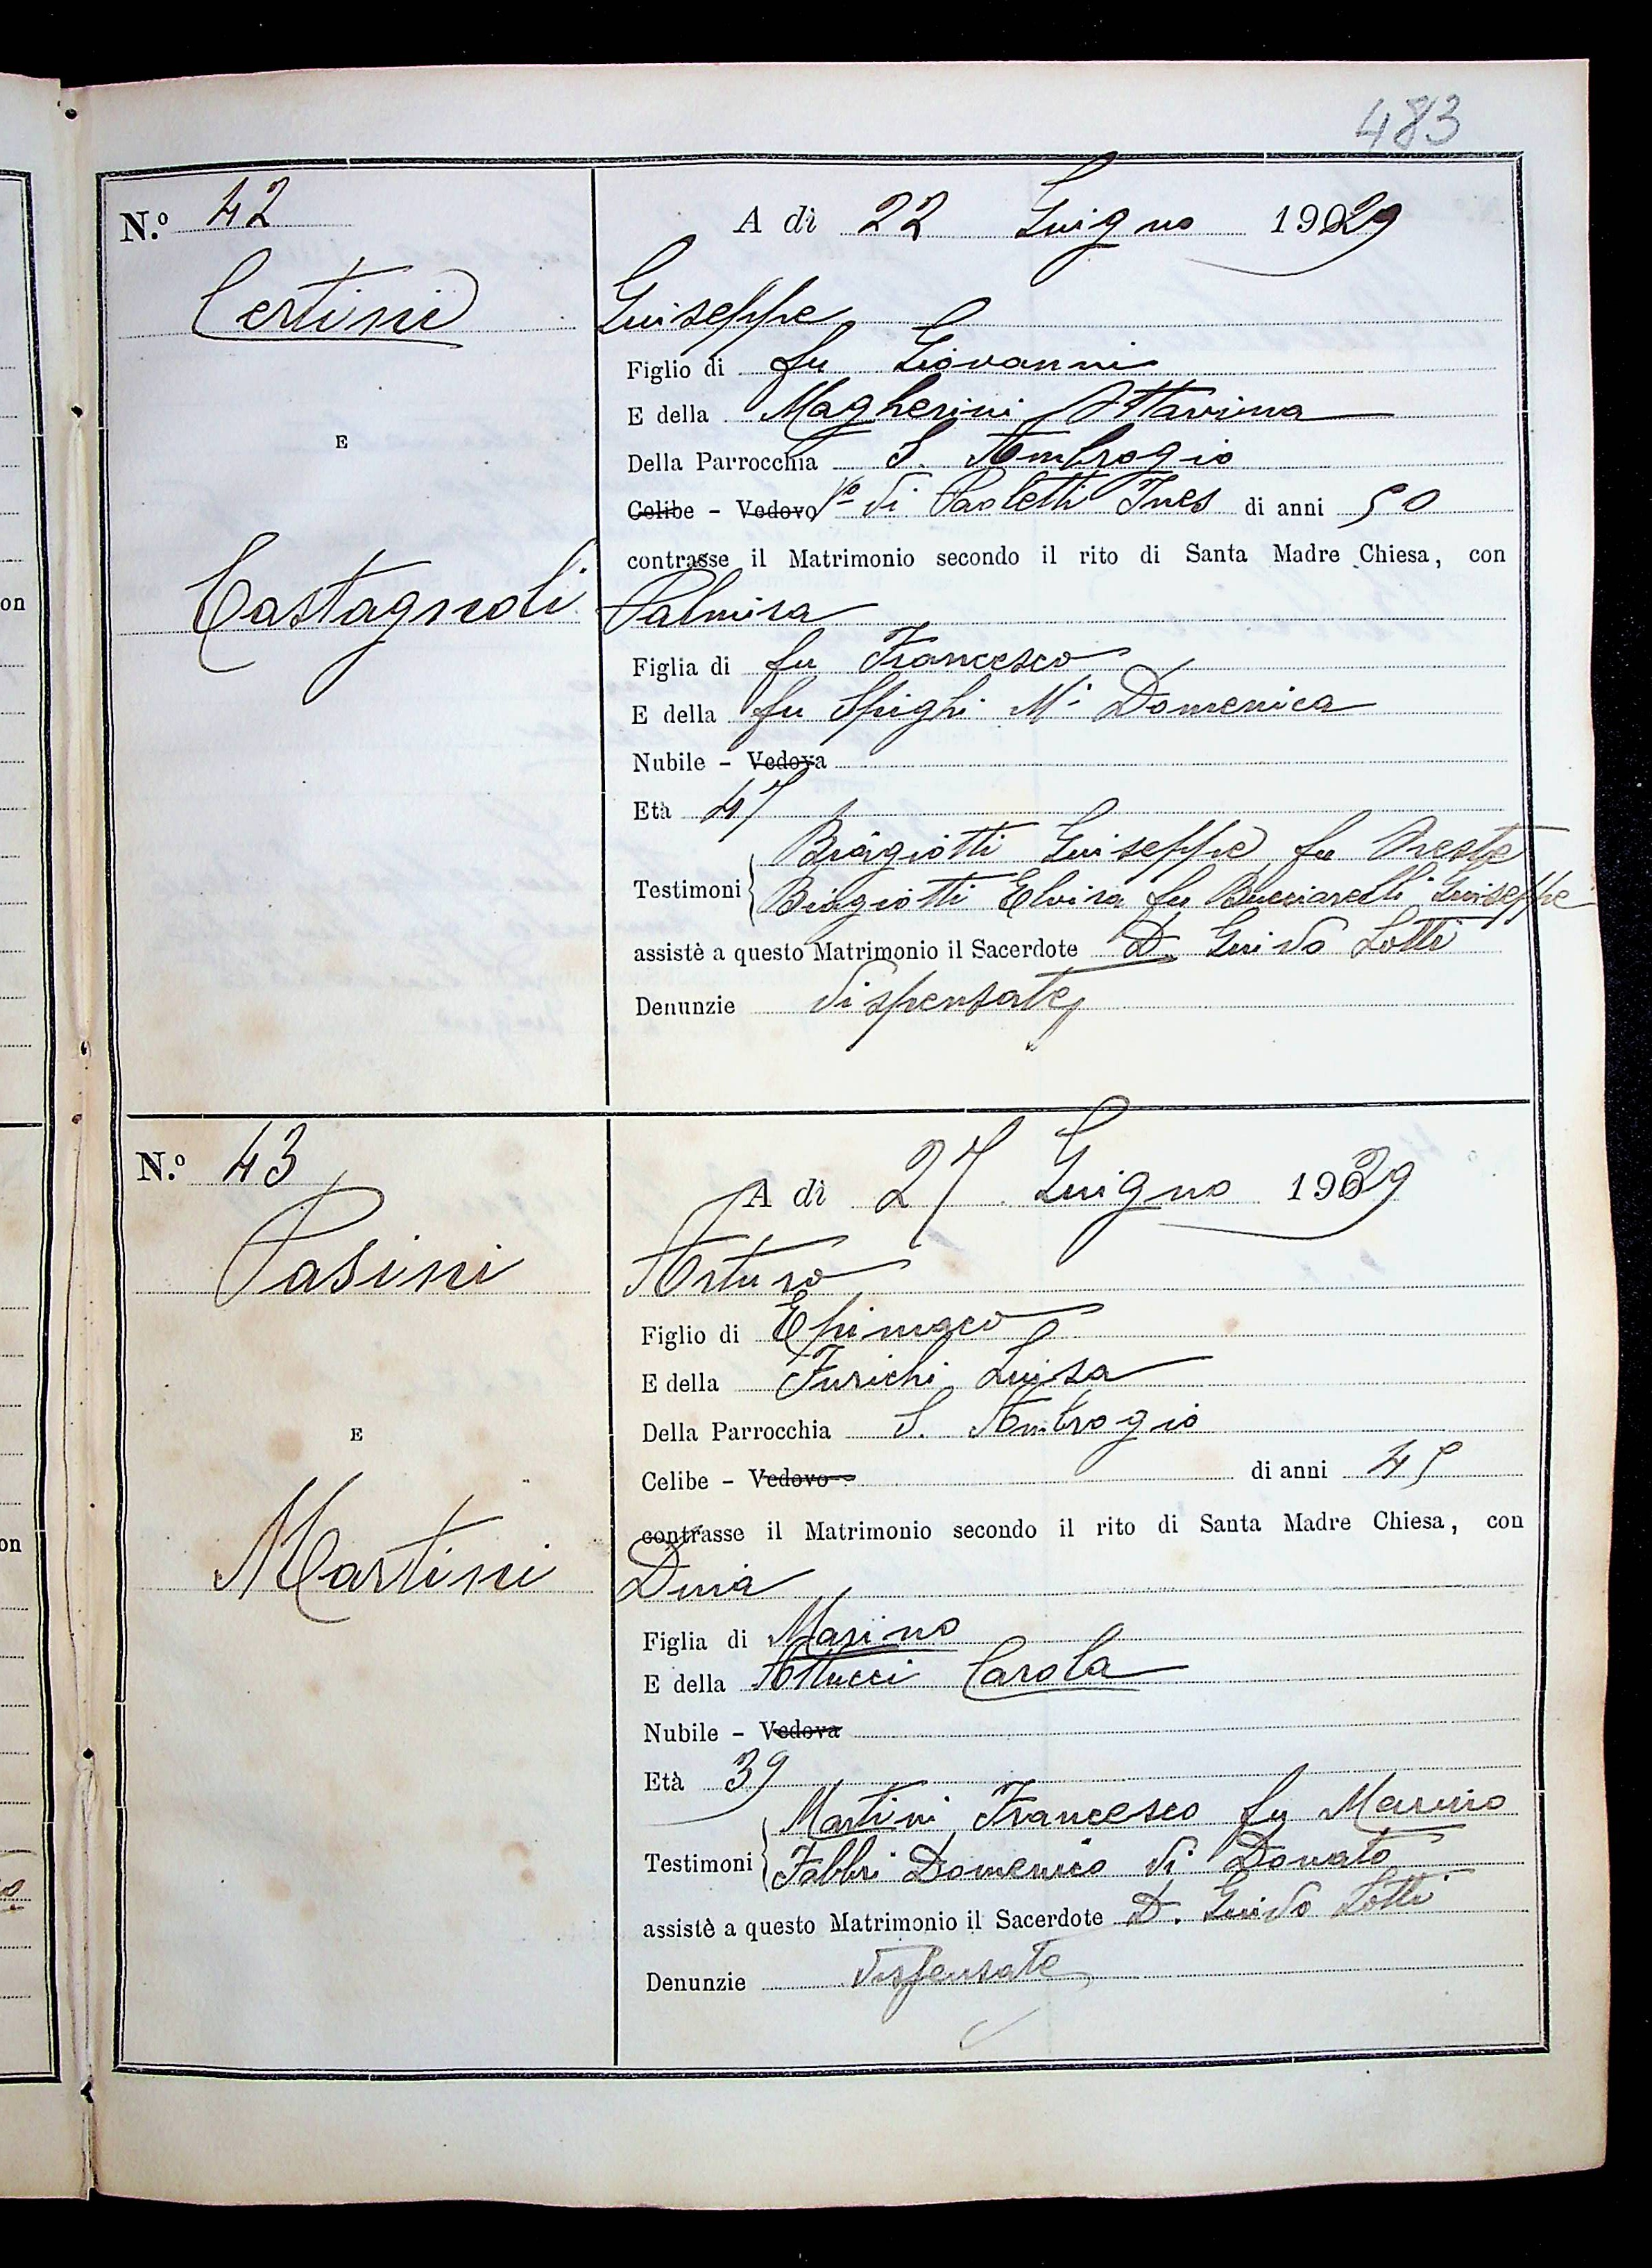 483
N.º 42
A dì 22 Giugno 1929
Certini
Giuseppe
Figlio di fu Giovanni
E della Magherini Ottavina
E
Della Parrocchia S. Ambrogio
Celibe - Vedovo Vº di Paoletti Ines di anni 50
contrasse il Matrimonio secondo il rito di Santa Madre Chiesa, con
Castagnoli
Palmira
Figlia di fu Francesco
E della fu Spighi Mª Domenica
Nubile - Vedova
Età 47
Biagiotti Giuseppe fu Oreste
Testimoni
Biagiotti Elvira fu Bucciarelli Giuseppe
assistè a questo Matrimonio il Sacerdote D. Guido Lotti
Denunzie dispensate
N.º 43
A dì 27 Giugno 1929
Pasini
Arturo
Figlio di Epimaco
E della Turichi Luisa
Della Parrocchia S. Ambrogio
E
Celibe - Vedovo di anni 45
contrasse il Matrimonio secondo il rito di Santa Madre Chiesa, con
Martini
Dina
Figlia di Marino
E della Attucci Carola
Nubile - Vedova
Età 39
Martini Francesco fu Marino
Testimoni
Fabbri Domenico di Donato
assistè a questo Matrimonio il Sacerdote D. Guido Lotti
Denunzie dispensate
on
on